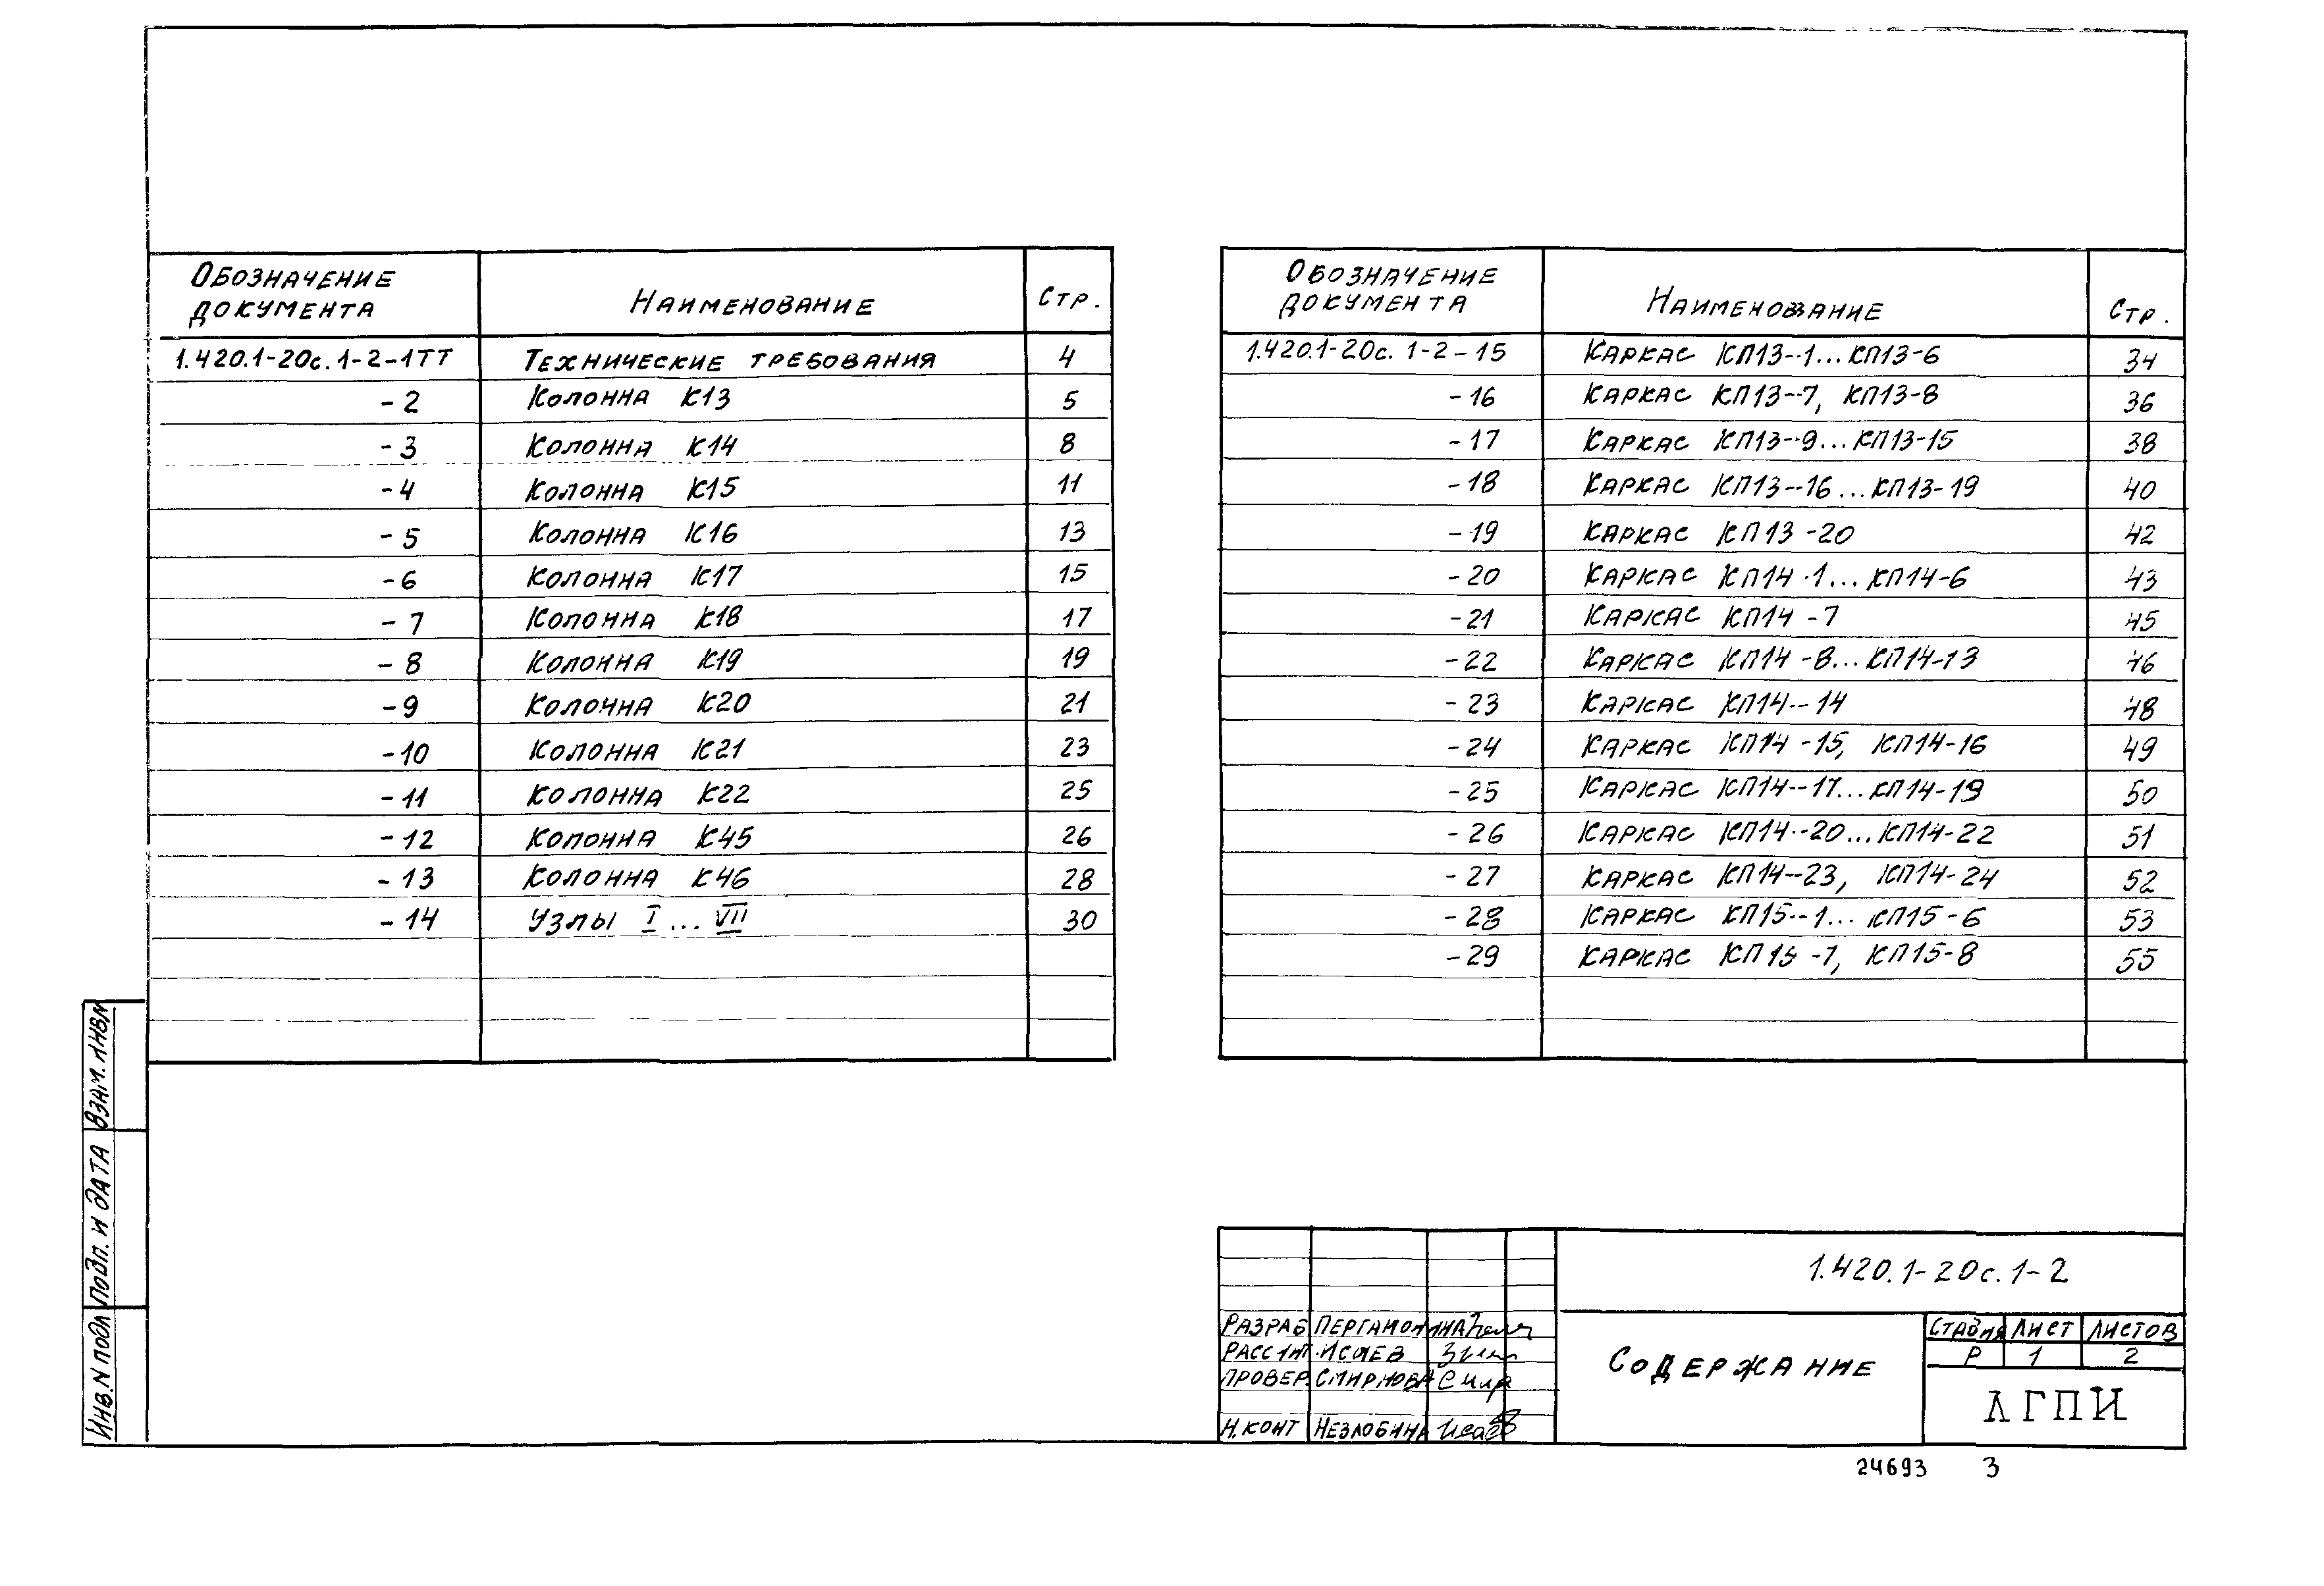 Обозначение документа Наименование Стр.
1.420.1-20с.1-2-1ТТ Технические требования 4
-2 Колонна К13 5
-3 Колонна К14 8
-4 Колонна К15 11
-5 Колонна К16 13
-6 Колонна К17 15
-7 Колонна К18 17
-8 Колонна К19 19
-9 Колонна К20 21
-10 Колонна К21 23
-11 Колонна К22 25
-12 Колонна К45 26
-13 Колонна К46 28
-14 Узлы I ... VII 30
Обозначение документа Наименование Стр.
1.420.1-20с.1-2-15 Каркас КП13-1...КП13-6 34
-16 Каркас КП13-7, КП13-8 36
-17 Каркас КП13-9...КП13-15 38
-18 Каркас КП13-16...КП13-19 40
-19 Каркас КП13-20 42
-20 Каркас КП14-1...КП14-6 43
-21 Каркас КП14-7 45
-22 Каркас КП14-8...КП14-13 46
-23 Каркас КП14-14 48
-24 Каркас КП14-15, КП14-16 49
-25 Каркас КП14-17...КП14-19 50
-26 Каркас КП14-20...КП14-22 51
-27 Каркас КП14-23, КП14-24 52
-28 Каркас КП15-1...КП15-6 53
-29 Каркас КП15-7, КП15-8 55
Взам. инв.N
Подп. и дата
Инв. N подл
1.420.1-20с.1-2
Разраб Пергамон
Проверил Смирнова
Н.конт Незлобина
Содержание
Стадия Лист Листов
Р 1 2
ЛГПИ
24693 3